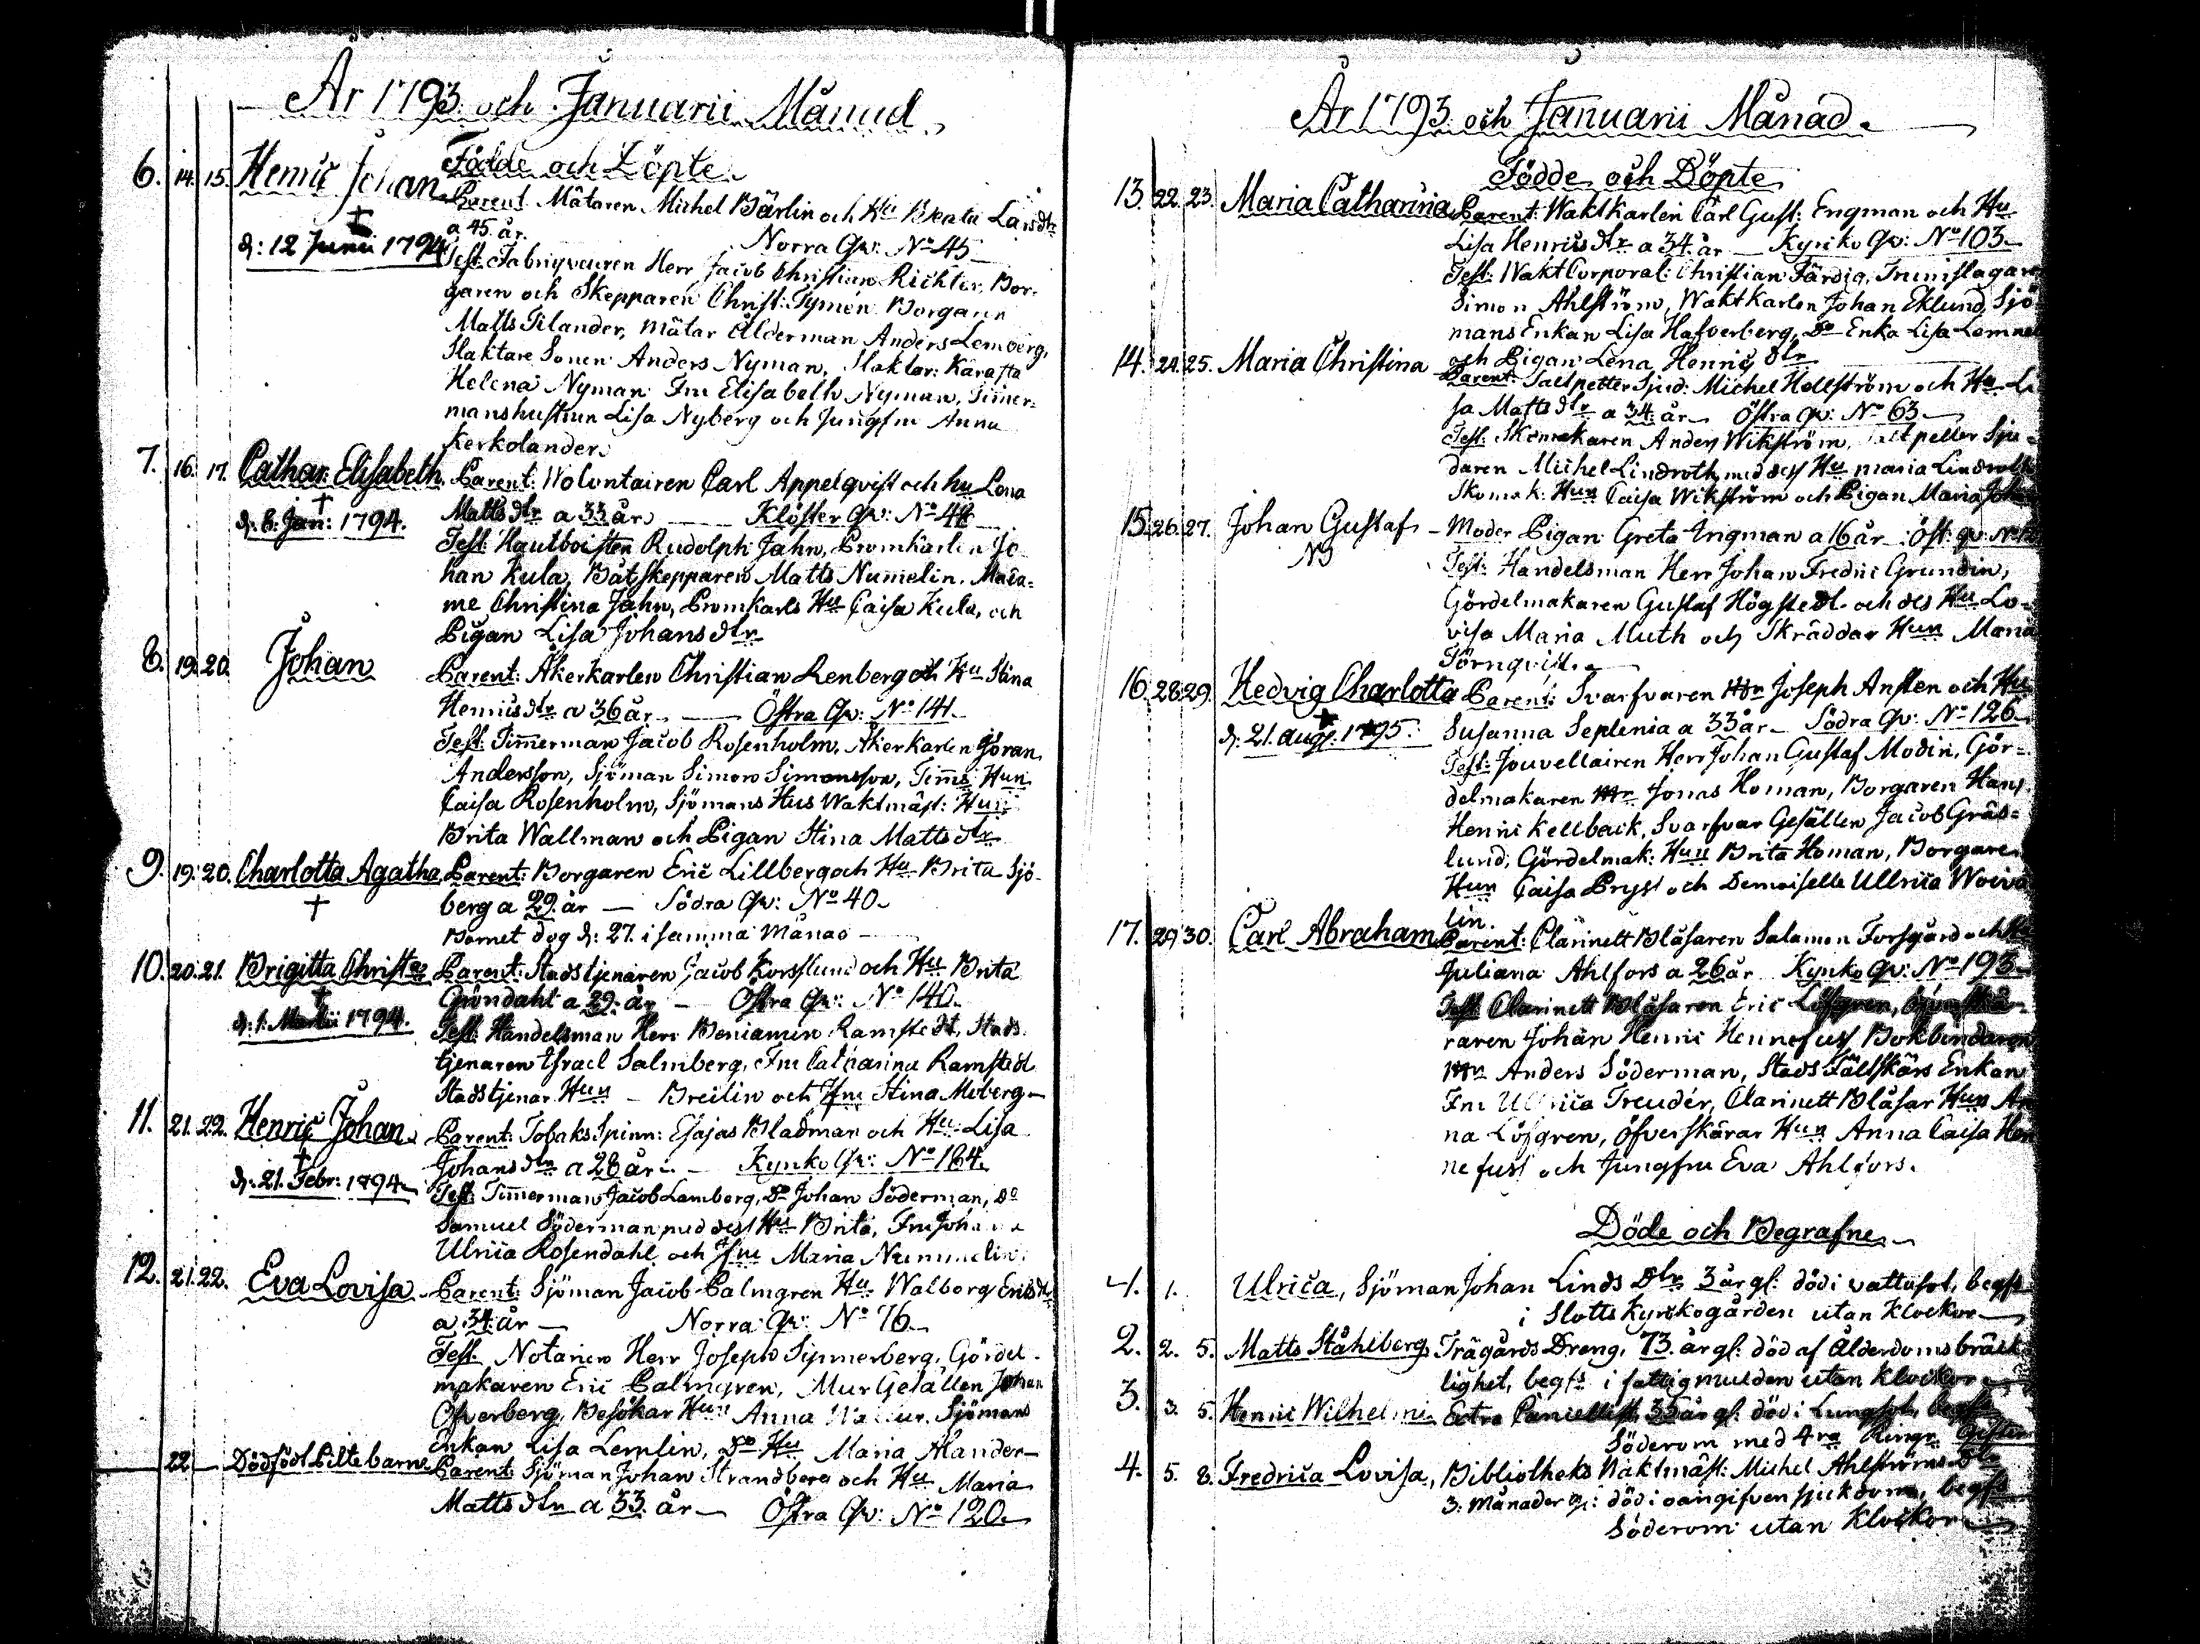 År 1793 och Januarii Månad
Födde och Döpte
6. 14. 15. Henric Johan Parent. Mätaren Michel Bärlin och Hu Beata Larsdtr
† a 45 år. Norra Qv: No 45
d: 12 Junii 1794 Test: Fabriqveuren Herr Jacob Christian Richter, Bor-
garen och Skepparen Christ: Tymén Borgaren
Matts Tilander, Mätar Ålderman Anders Lemberg,
Slaktare Sonen Anders Nyman, Slaktar: Kärasta
Helena Nyman Fru Elisabeth Nyman, Timer-
manshustrun Lisa Nyberg och Jungfru Anna
Kerkolander.
7. 16. 17. Cathar: Elisabeth Parent: Volontairen Carl Appelqvist och hu Lena
† Matts dtr a 33 år Klöster Qv: No 44
d: 8: Jan: 1794. Test: Hautboisten Rudolph Jahn, Promkarlen Jo-
han Kula, Båtskepparen Matts Numelin. Mada-
me Christina Jahn, Promkarls Hu Caisa Kula, och
Pigan Lisa Johans dtr
8. 19. 20. Johan Parent: Åkerkarlen Christian Renberg och Hu Stina
Henricsdtr a 36 år Östra Qv: No 141
Test: Timmerman Jacob Rosenholm, Åkerkarlen Göran
Andersson, Sjöman Simon Simonsson, Timms: Hun
Caisa Rosenholm, Sjömans Hus Waktmäst: Hun
Brita Wallman och Pigan Stina Matts dtr
9. 19. 20. Charlotta Agatha Parent: Borgaren Eric Lillberg och Hu Brita Sjö-
† berg a 29 år Södra Qv: No 40
Barnet dog d: 27. i samma Månad
10. 20. 21. Brigitta Christ: Parent: Stadstjenaren Jacob Korsslund och Hu Brita
† Gröndahl a 29 år Östra Qv: No 140.
d: 1. Martii 1794. Test: Handelsman Herr Beniamin Ramstedt, Stads
tjenaren Israel Salmberg, Fru Catharina Ramstedt
Stadstjenar Hun - Breilin och Jfru Stina Moberg
11. 21. 22. Henric Johan Parent: Tobaks Spinn: Esajas Bladman och Hu: Lisa
† Johansdtr a 28 år Kyrko Qv: No 184.
d: 21. Febr: 1794. Test: Timmerman Jacob Lamberg, Do Johan Söderman, Do
Samuel Söderman med dess Hu Brita, Fru
Ulrica Rosendahl och Jfru Maria Nummelin.
12. 21. 22. Eva Lovisa Parent: Sjöman Jacob Palmgren Hu Walborg Ericsdtr
a 34 år Norra Qv: No 76
Test. Notarien Herr Joseph Simmerberg, Gördel-
makaren Eric Palmgren, Mur Gesällen Johan
Öfverberg, Besökar Hun Anna Sjömans
Enkan Lisa Lemlin, Do Hu Maria Ålander
22 Dödfödt Piltebarn Parent: Sjöman Johan Strandberg och Hu Maria
Matts dtr a 33 år Östra Qv: No 120.
År 1793 och Januarii Månad.
Födde och Döpte
13. 22. 23. Maria Catharina Parent: Waktkarlen Carl Gust: Engman och Hu
Lisa Henricsdtr a 34. år Kyrko Qv: No 103
Test: Wakt Corporal: Christian Färdig, Trumslagare
Simon Ahlström, Waktkarlen Johan Eklund, Sjö
mans Enkan Lisa Hafverberg, Do Enka Lisa
och Pigan Lena Henric dtr
14. 24. 25. Maria Christina Parent: Saltpetter Sjud: Michel Hellström och Hu Li
sa Mattsdtr a 34. år Östra Qv: No 63
Test: Skomakaren Anders Wikström, Saltpetter Sju-
daren Michel Lindroth med dess Hu Maria Lindroth
Skomak: Hun Caisa Wikström och Pigan Maria
15. 26. 27. Johan Gustaf Moder Pigan Greta Ingman a 16 år Öst: qv:
Test: Handelsman Herr Johan Fredric Grundin,
Gördelmakaren Gustaf Högstedt och des Hu Lo-
visa Maria Muth och Skräddar Hun Maria
Törnqvist.
16. 28. 29. Hedvig Charlotta Parent: Svarfvaren Mr Joseph Ansten och Hu
† Susanna Seplenia a 33 år Södra Qv: No 126
d: 21. aug: 1795. Test: Jouvellairen Herr Johan Gustaf Modin, Gör-
delmakaren Mr Jonas Homan, Borgaren Hans
Henric Kellback, Svarfvar Gesällen Jacob Gräs-
lund, Gördelmak: Hun Brita Homan, Borgare
Hun Caisa Pryss och Demoiselle Ullrica Woiva
lin.
17. 29. 30. Carl Abraham Parent: Clarinett Blåsaren Salamon Forsgård och Hu
Juliana Ahlfors a 26 år Kyrko Qv: No 193
Test: Clarinett Blåsaren Eric Löfgren,
raren Johan Henric Hennefuss Bokbindaren
Mr Anders Söderman, Stads Fältskärs Enkan
Fru Ullrica Treudér, Clarinett Blåsar Hun An
na Löfgren, Öfverskärar Hun Anna Caisa Hen
nefuss och Jungfru Eva Ahlfors.
Döde och Begrafne
1. 1. Ulrica, Sjöman Johan Linds Dtr 3 år gl: död i vattusot, begfs
i Slotts Kyrkogården utan Klockor
2. 2. 5. Matts Ståhlberg, Trägårds Dreng, 73. år gl: död af Ålderdoms bräck
lighet, begfs i fattigmulden utan Klockor
3. 3. 5. Henric Wilhelm Extra 35 år gl: död i Lungsot, begfs
Söderom med 4ra Ringn.
4. 5. 8. Fredrica Lovisa, Bibliotheks Waktmäst: Michel Ahlströms Dtr
3: Månader gl: död i oangifven sjukdom, begfs
Söderom utan Klockor